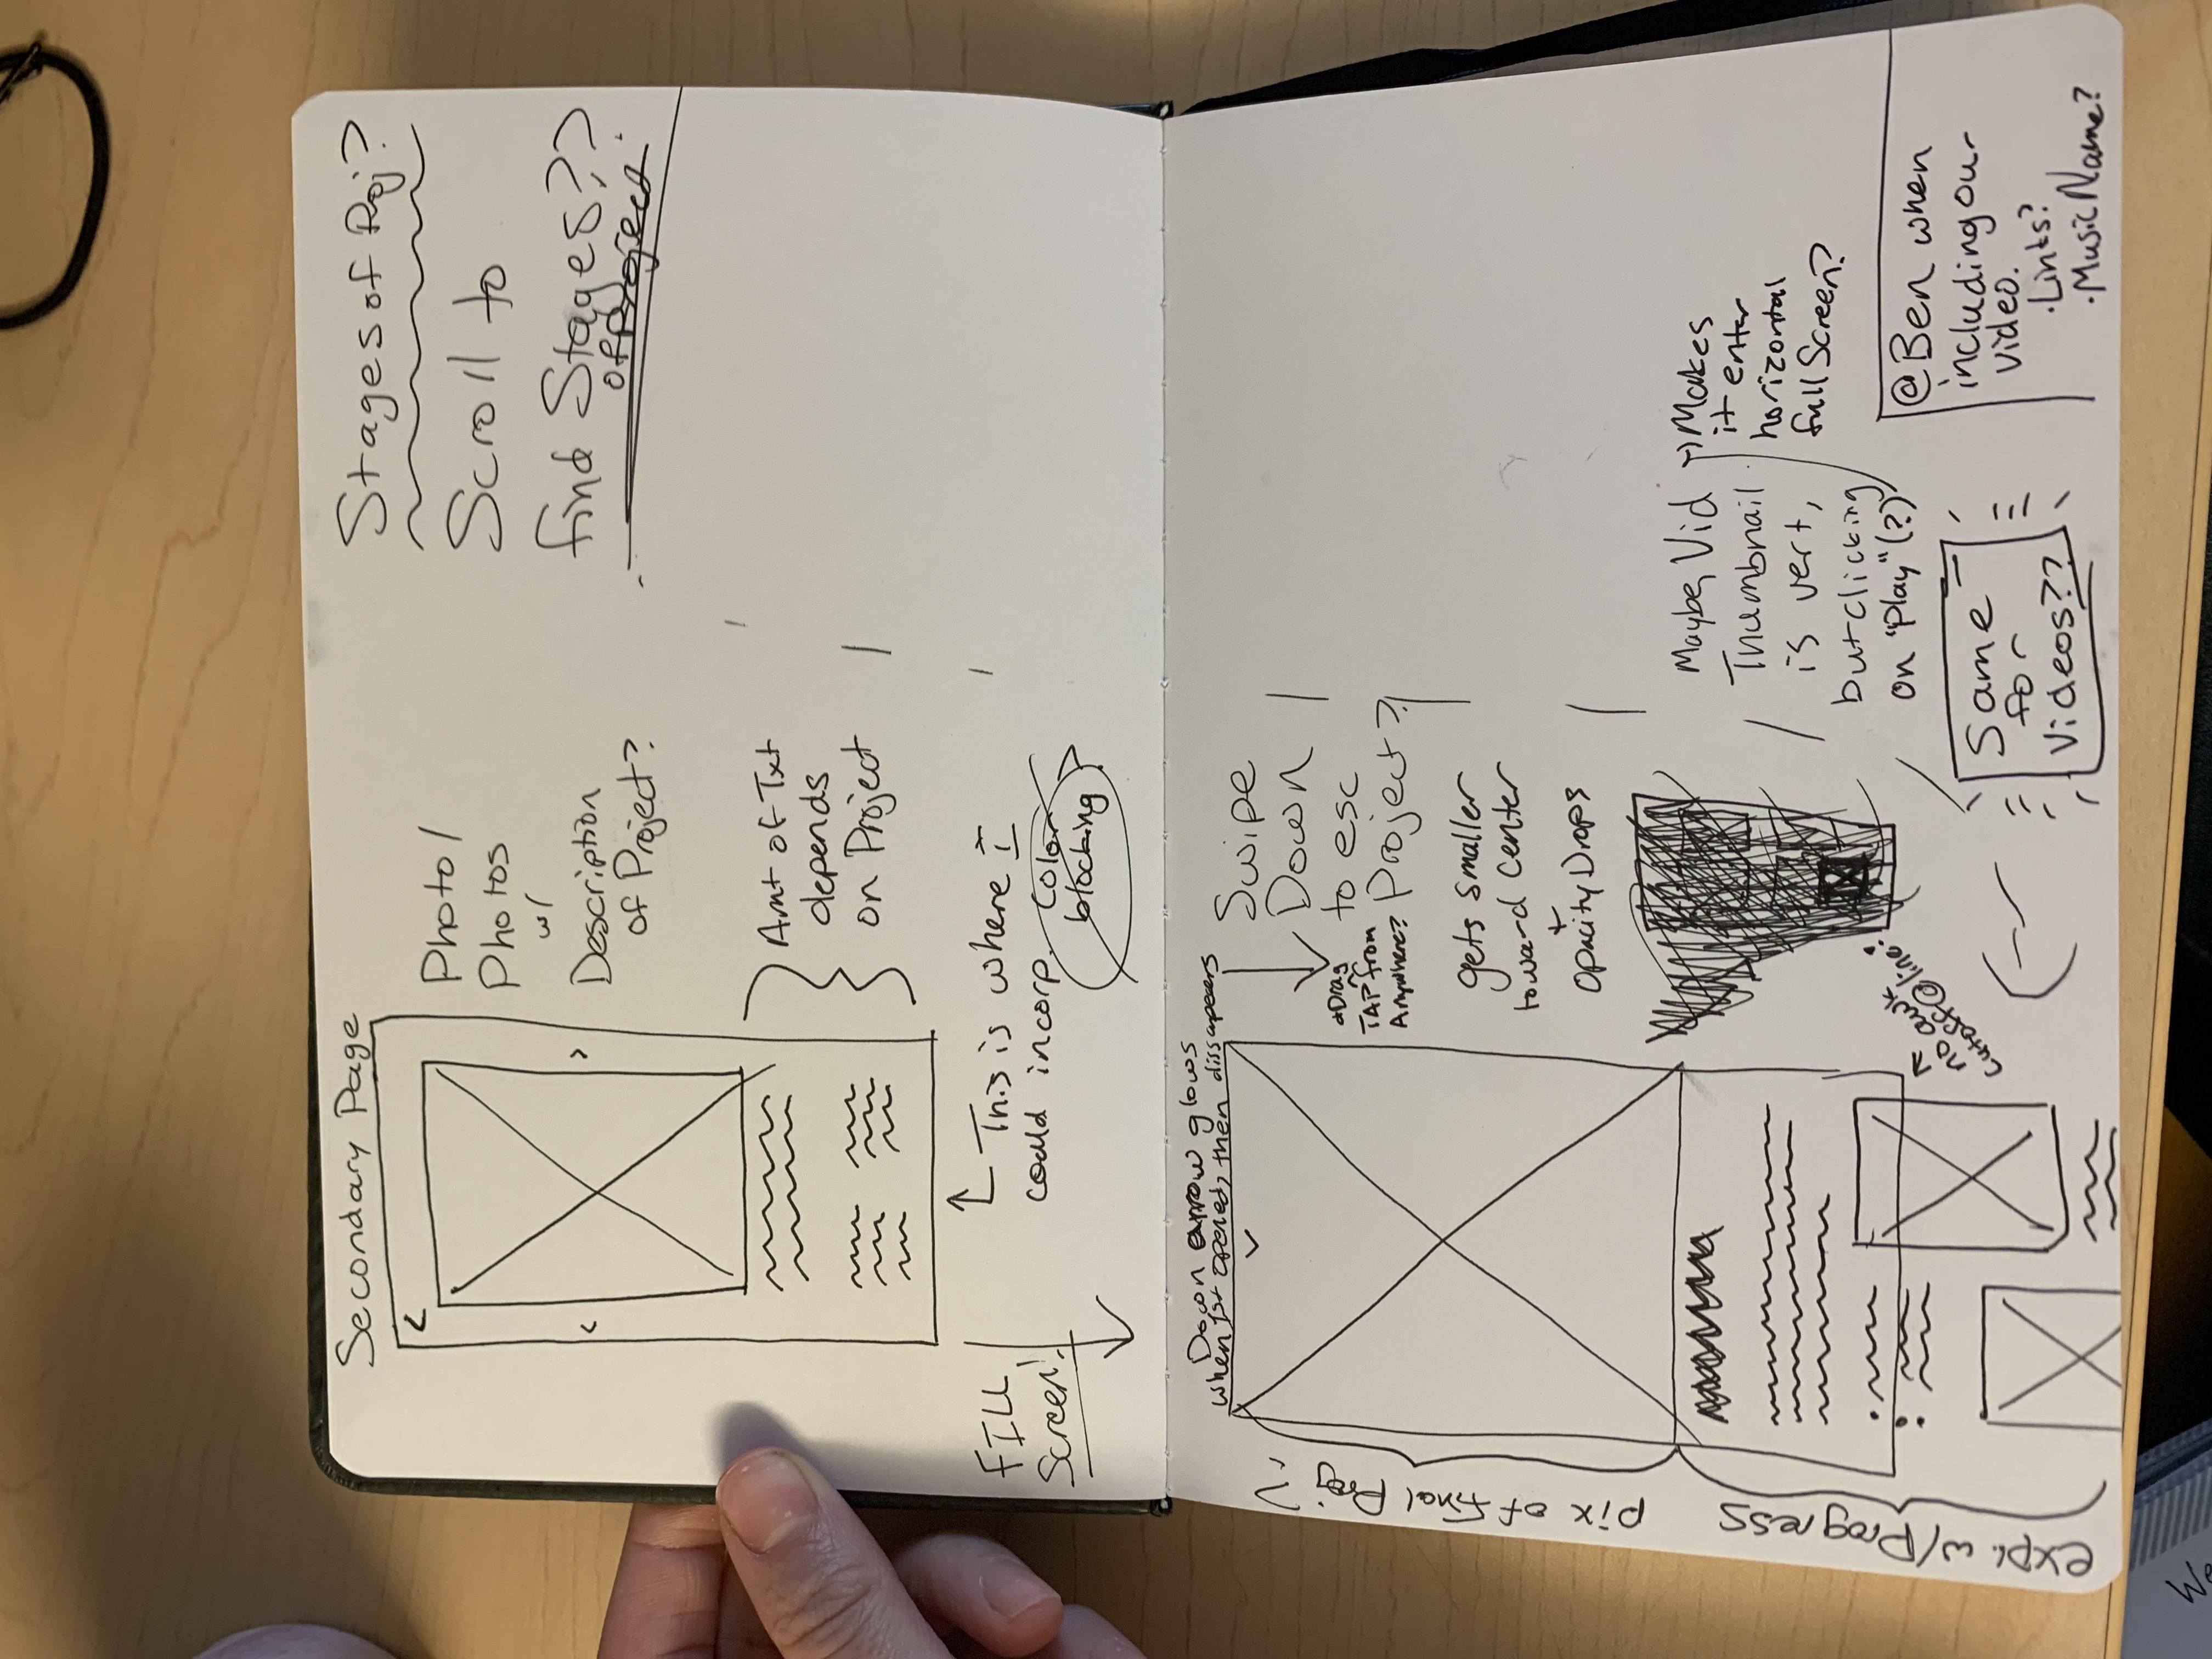 Secondary Page
Photo/
Photos
w/
Description
of Project?
Amt of Txt
depends
on Project
This is where I
could incorp. Color
blocking?
FILL
Screen!
Stages of Proj?
Scroll to
find Stages??
of Project
Down arrow glows
when 1st opened, then dissapears
pix of final Proj?
expl. w/Progress
Swipe
Down
to esc
Project?
+Drag
TAP from
Anywhere?
gets smaller
toward center
+
Opacity Drops
no awk
cutoff@line!
Maybe, Vid
Thumbnail
is vert,
but clicking
on "Play" (?)
Makes
it enter
horizontal
full Screen?
Same
for
Videos??
@Ben when
including our
video.
·Links?
·Music Name?